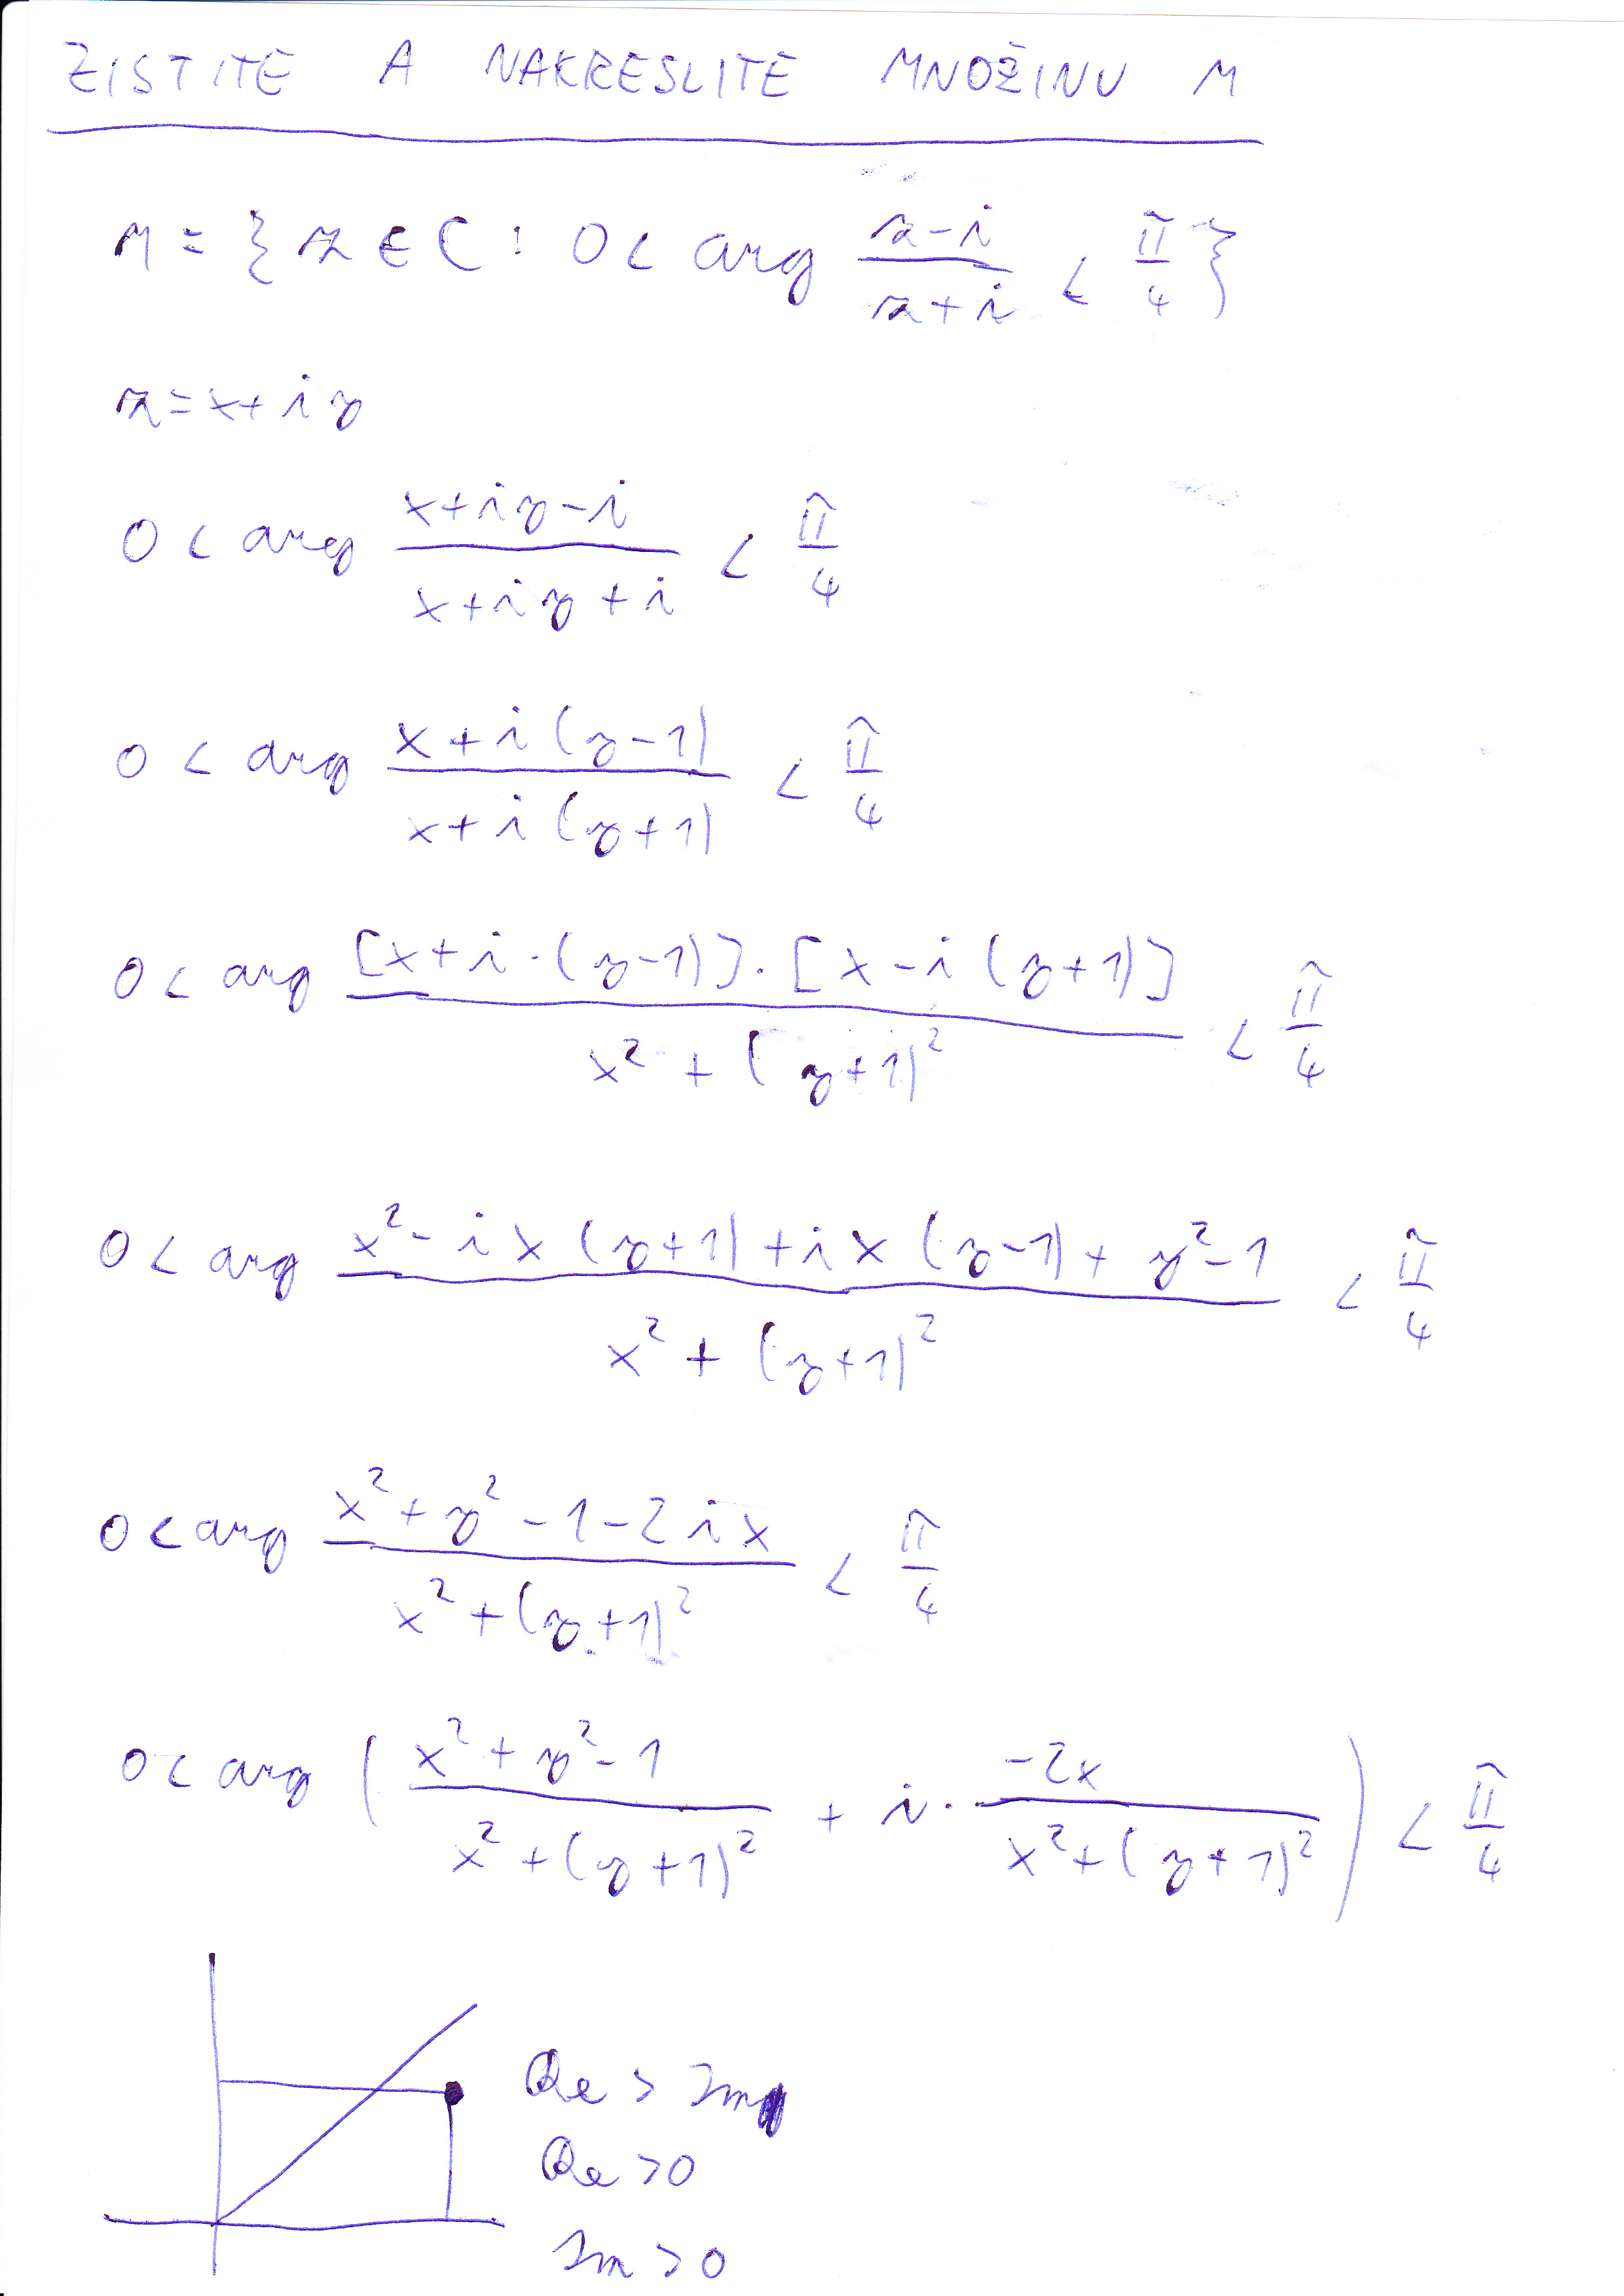 ZISTITE A NAKRESLITE MNOŽINU M
M = { z ∈ C : 0 < arg (z-i)/(z+i) < π/4 }
z = x + iy
0 < arg (x+iy-i)/(x+iy+i) < π/4
0 < arg (x+i(y-1))/(x+i(y+1)) < π/4
0 < arg ([x+i·(y-1)]·[x-i(y+1)])/(x²+(y+1)²) < π/4
0 < arg (x²-ix(y+1)+ix(y-1)+y²-1)/(x²+(y+1)²) < π/4
0 < arg (x²+y²-1-2ix)/(x²+(y+1)²) < π/4
0 < arg ( (x²+y²-1)/(x²+(y+1)²) + i· (-2x)/(x²+(y+1)²) ) < π/4
Re > Im
Re > 0
Im > 0